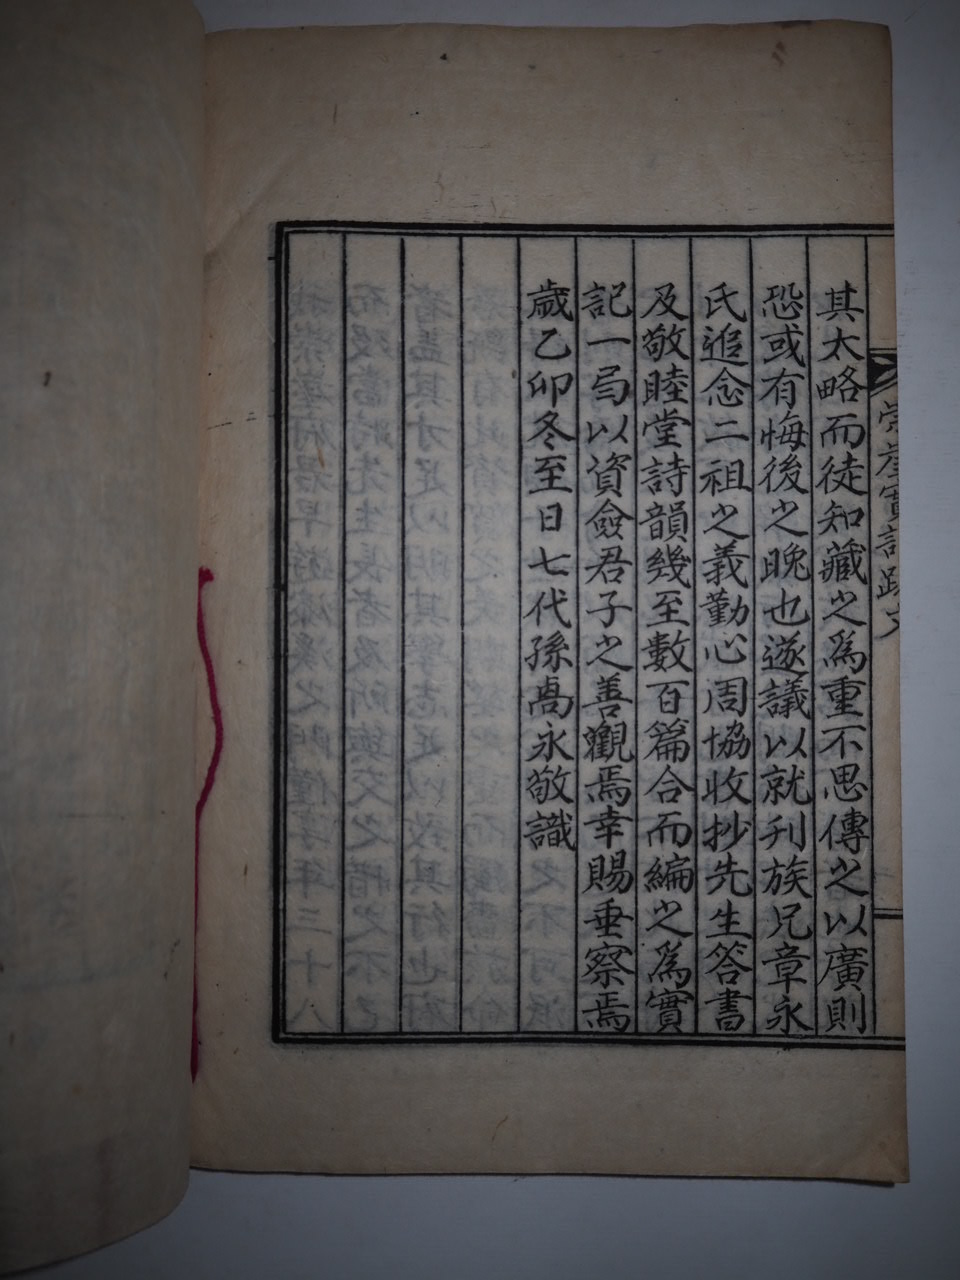 崇崖實記跋文
其太略而徒知藏之爲重不思傳之以廣則
恐或有悔後之晚也遂議以就刊族兄章永
氏追念二祖之義勤心周協收抄先生答書
及敬睦堂詩韻幾至數百篇合而編之爲實
記一局以資僉君子之善觀焉幸賜垂察焉
歲乙卯冬至日七代孫卨永敬識